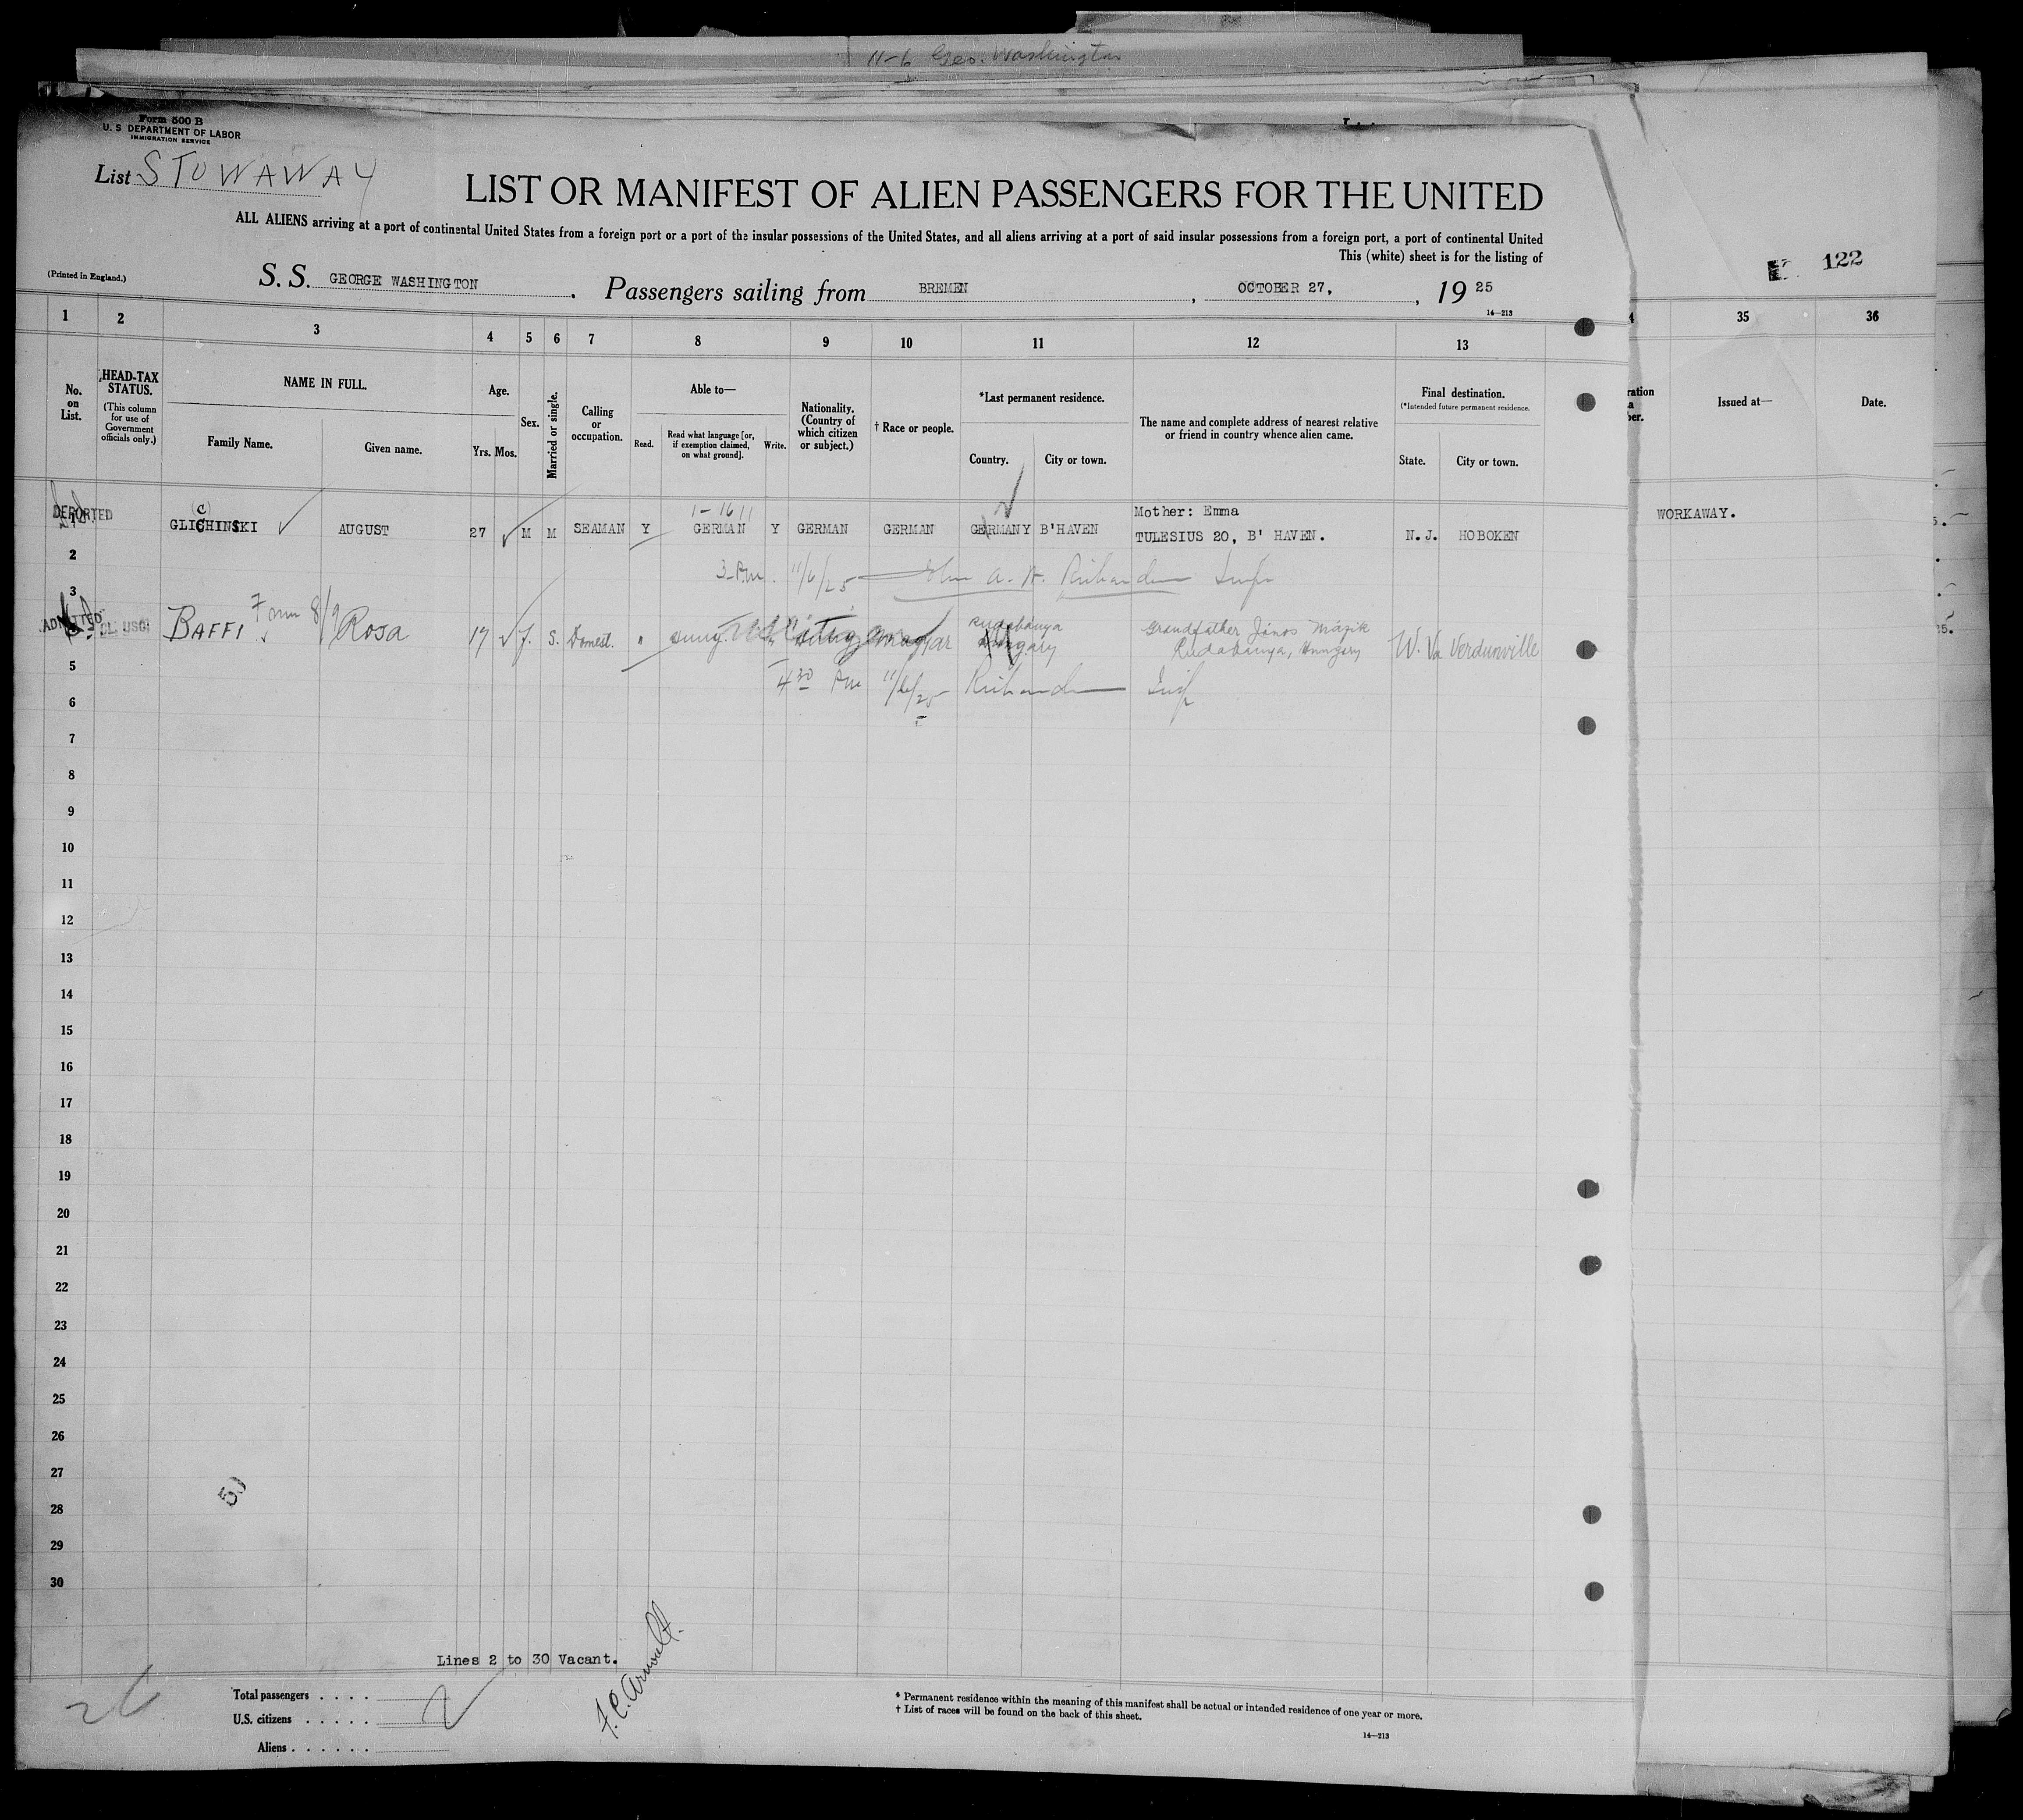 11-6 Geo. Washington
Form 500 B
U. S DEPARTMENT OF LABOR
IMMIGRATION SERVICE
List STOWAWAY
LIST OR MANIFEST OF ALIEN PASSENGERS FOR THE UNITED
ALL ALIENS arriving at a port of continental United States from a foreign port or a port of the insular possessions of the United States, and all aliens arriving at a port of said insular possessions from a foreign port, a port of continental United
This (white) sheet is for the listing of
122
(Printed in England.)
S. S. GEORGE WASHINGTON . Passengers sailing from BREMEN , OCTOBER 27, , 19 25
14—213
1 2 3 4 5 6 7 8 9 10 11 12 13 35 36
No. on List.
HEAD-TAX STATUS.
(This column for use of Government officials only.)
NAME IN FULL.
Family Name. Given name.
Age.
Yrs. Mos.
Sex.
Married or single.
Calling or occupation.
Able to—
Read. Read what language [or, if exemption claimed, on what ground]. Write.
Nationality. (Country of which citizen or subject.)
† Race or people.
*Last permanent residence.
Country. City or town.
The name and complete address of nearest relative or friend in country whence alien came.
Final destination.
(*Intended future permanent residence.
State. City or town.
Issued at—
Date.
1-16 11
Mother: Emma
DEPORTED GLICHINSKI AUGUST 27 M M SEAMAN Y GERMAN Y GERMAN GERMAN GERMANY B'HAVEN TULESIUS 20, B' HAVEN. N.J. HOBOKEN WORKAWAY.
2
3 Pm. 11/6/25 John A. H.
3
ADMITTED BAFFI Form 8/9 Rosa 17 f. S. Domest. " Magyar Rudabanya Hungary Grandfather János Mázik Rudabanya, Hungary W. Va Verdunville
5
4 30 Pm 11/6/25
6
7
8
9
10
11
12
13
14
15
16
17
18
19
20
21
22
23
24
25
26
27
50
28
29
30
Lines 2 to 30 Vacant.
Total passengers . . . .
U.S. citizens . . . . .
Aliens . . . . . .
2
* Permanent residence within the meaning of this manifest shall be actual or intended residence of one year or more.
† List of races will be found on the back of this sheet.
14—213